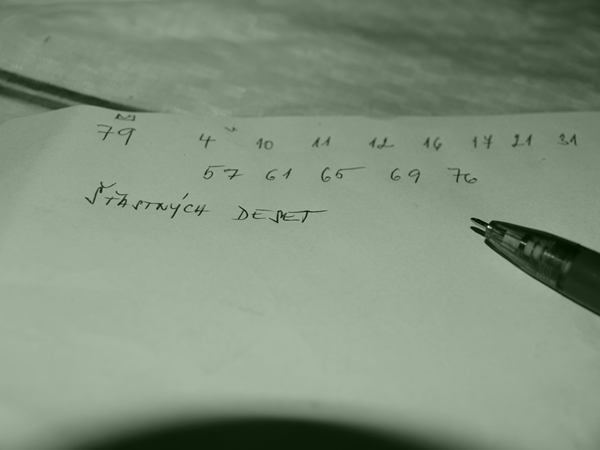 79 4 10 11 12 16 17 21 31
57 61 65 69 76
ŠŤASTNÝCH DESET